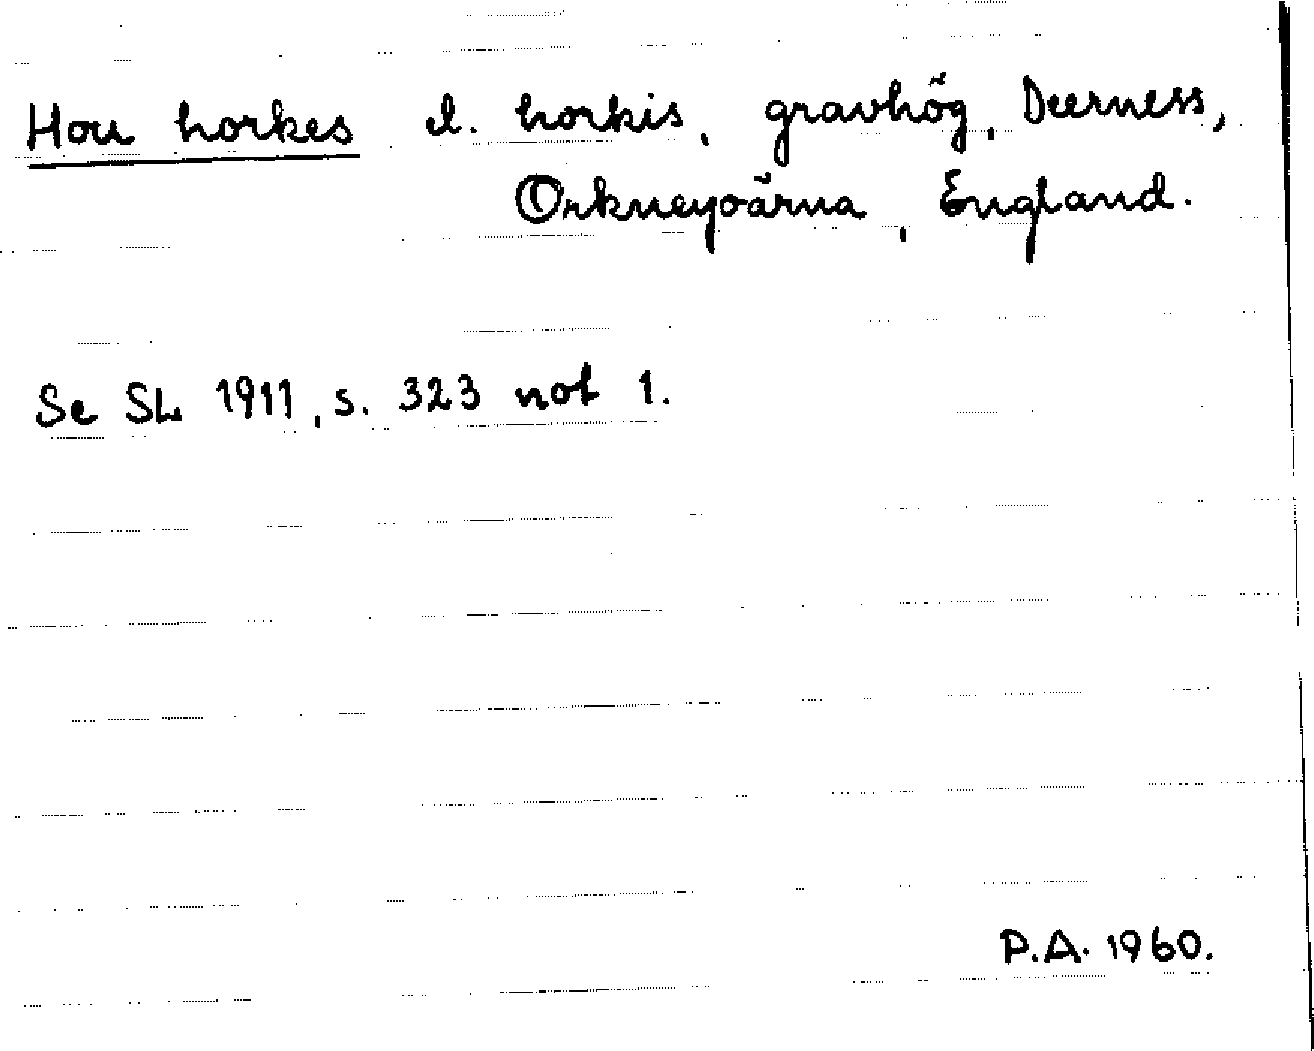 Hou horkes el. horkis, gravhög, Deerness,
Orkneyöärna, England.
Se SL 1911, s. 323 not 1.
P.A. 1960.